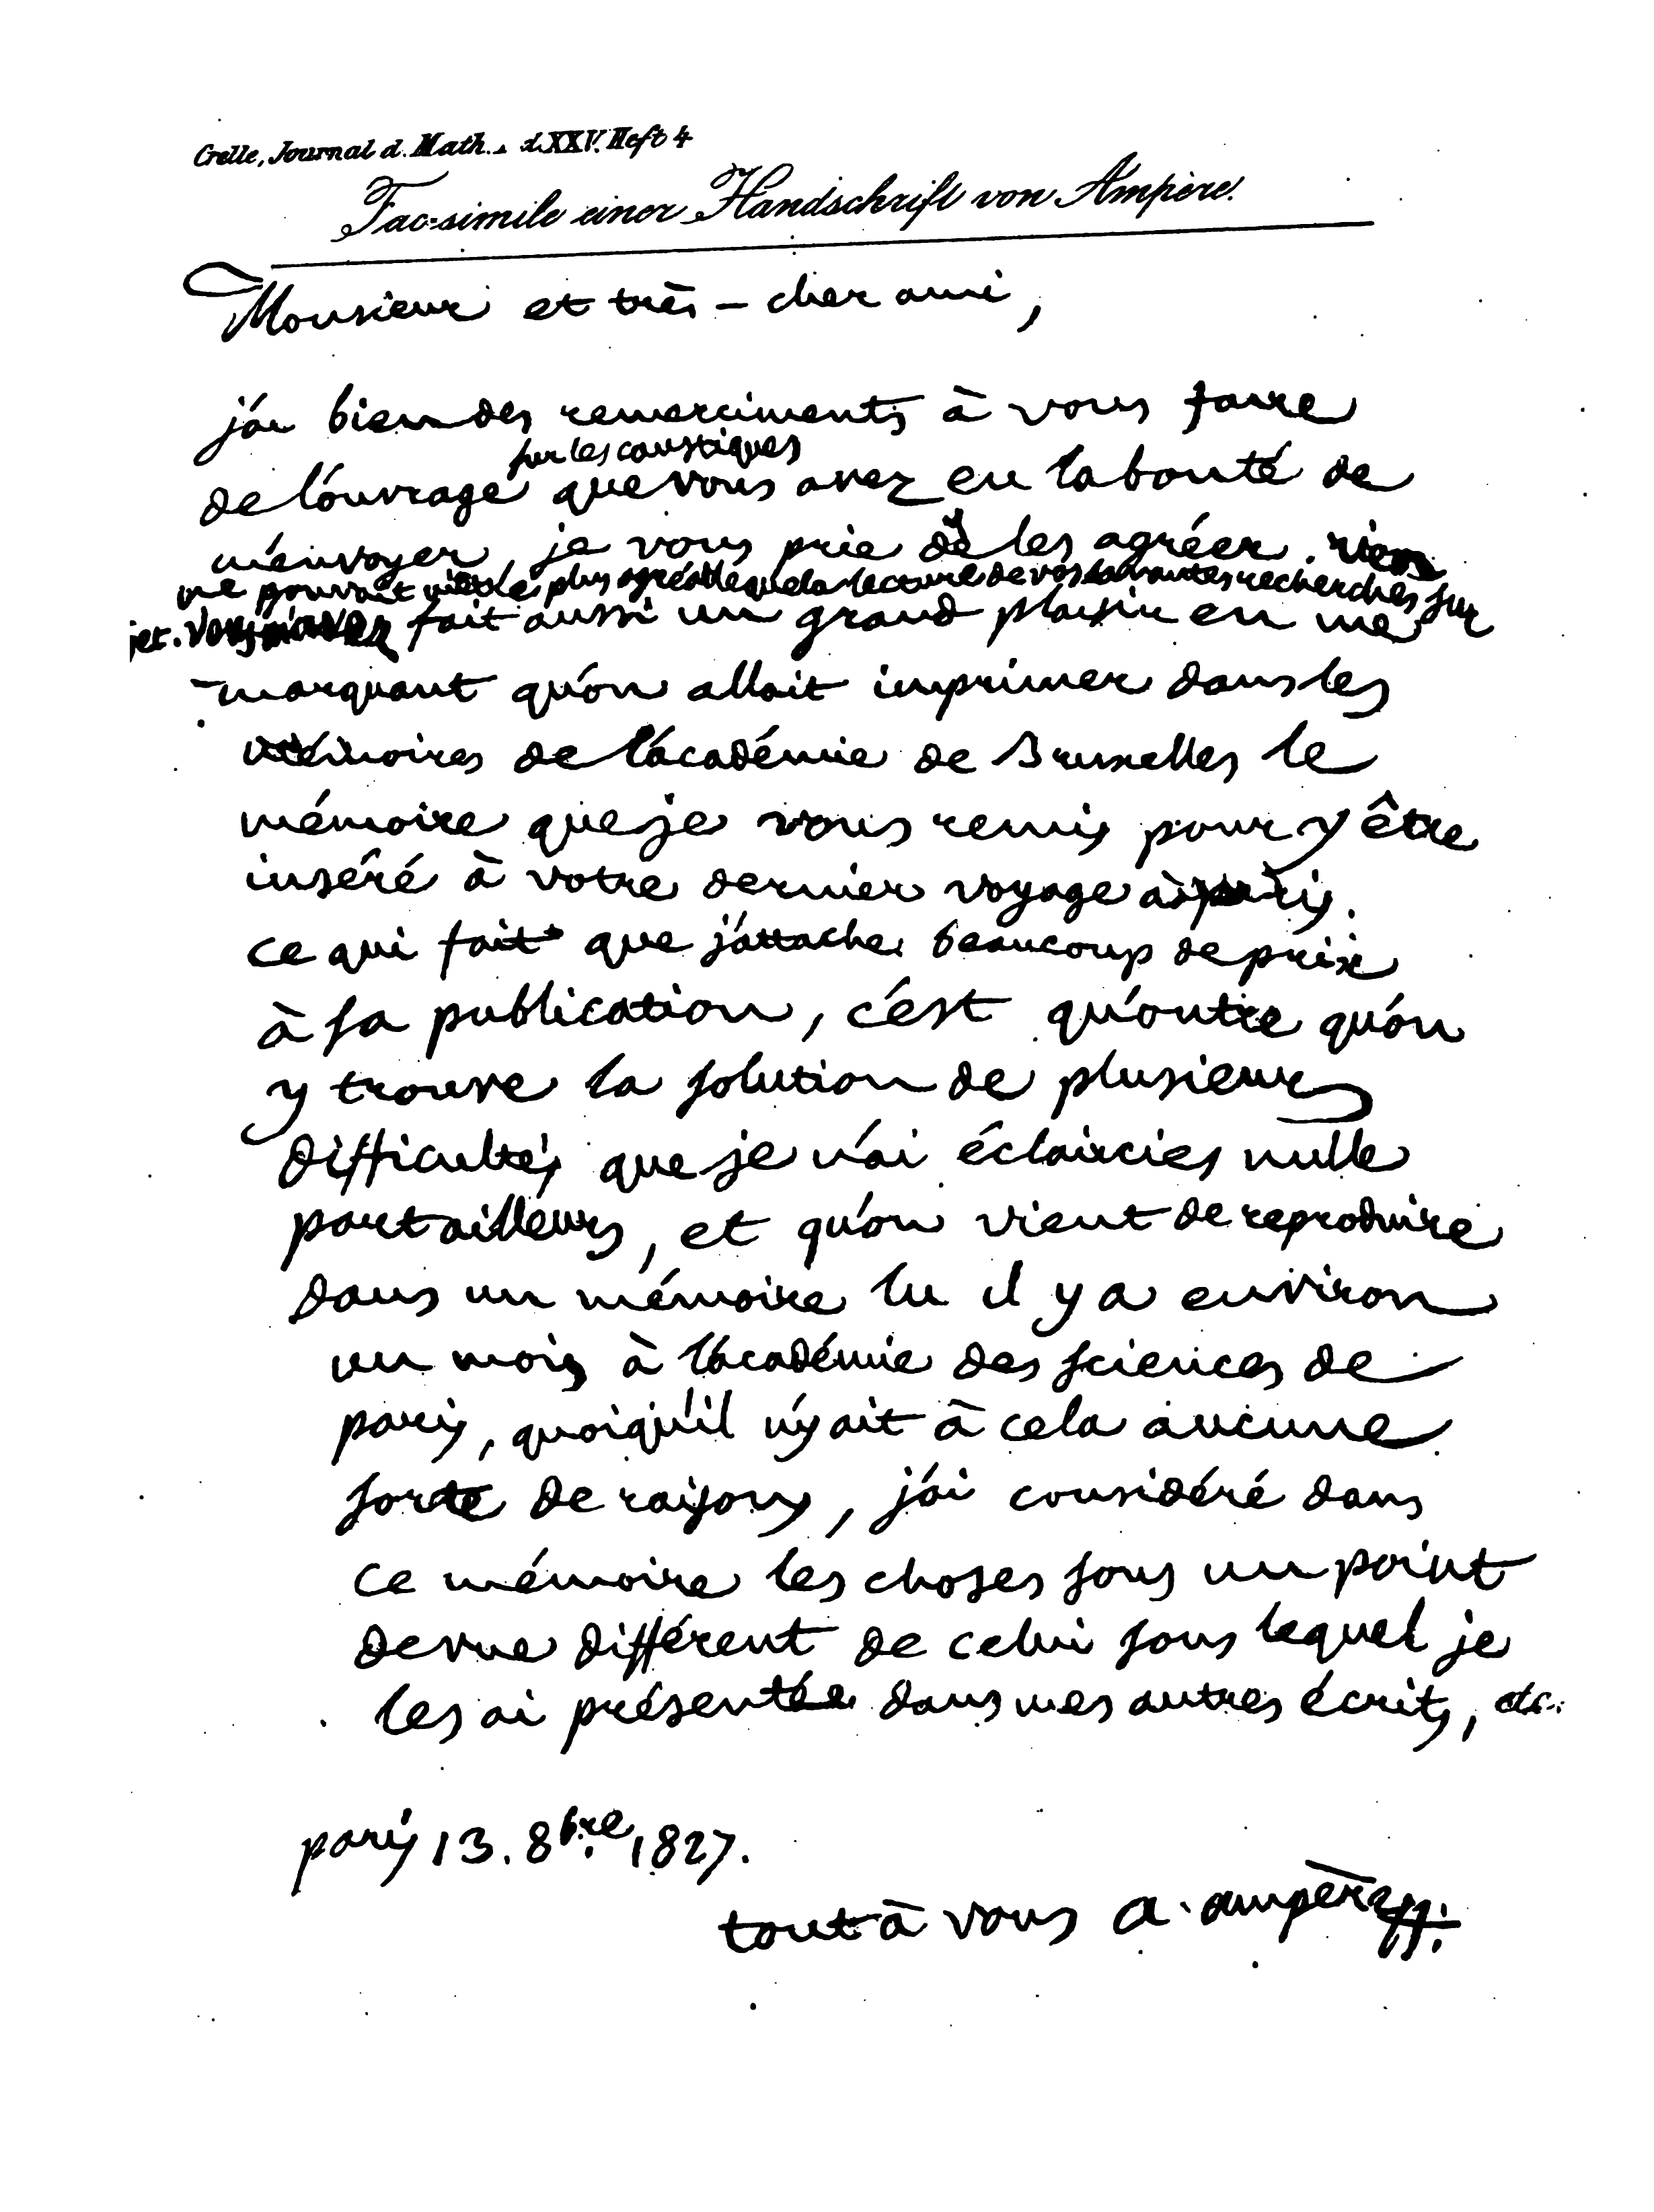 Crelle, Journal d. Math. Bd. XXV. Heft 4
Fac-simile einer Handschrift von Ampère.
Monsieur et très-cher ami,
j'ai bien des remerciments à vous faire
sur les caustiques
de l'ouvrage que vous avez eu la bonté de
m'envoyer, je vous prie de les agréer. rien
ne pouvait m'être plus agréable que la lecture de vos savantes recherches sur
jet. vous m'avez fait aussi un grand plaisir en me
marquant qu'on allait imprimer dans les
mémoires de l'académie de Bruxelles le
mémoire que je vous remis pour y être
inséré à votre dernier voyage à paris.
ce qui fait que j'attache beaucoup de prix
à sa publication, c'est qu'outre qu'on
y trouve la solution de plusieurs
difficultés que je n'ai éclaircies nulle
part ailleurs, et qu'on vient de reproduire
dans un mémoire lu il y a environ
un mois à l'académie des sciences de
paris, quoiqu'il n'y ait à cela aucune
sorte de raisons, j'ai considéré dans
ce mémoire les choses sous un point
de vue différent de celui sous lequel je
les ai présentée dans mes autres écrits, etc.
paris 13. 8bre 1827.
tout à vous a. ampère